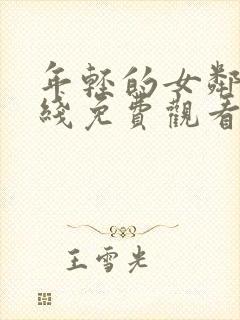 年轻的女鄰
綫免費觀看
王雪光